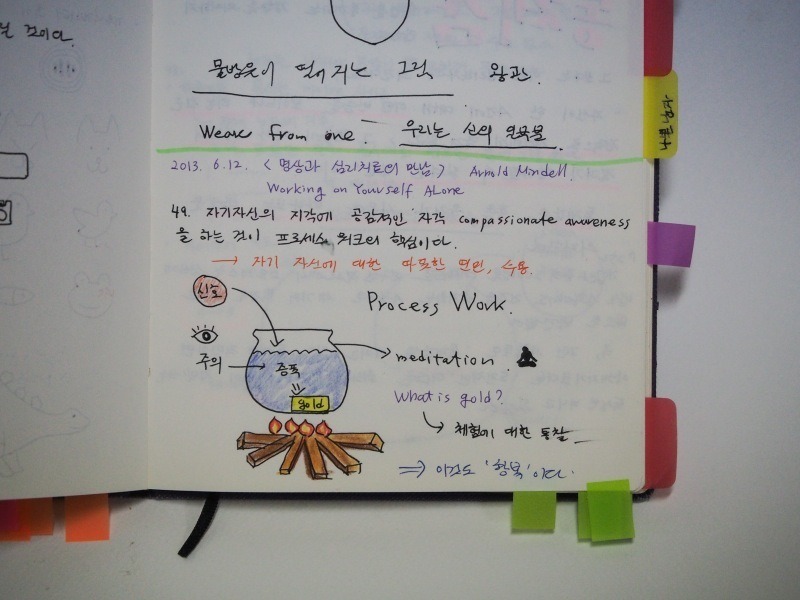 것이다.
물방울이 떨어지는 그릭 왕관.
Weak from one. 우리는 신의 연속물
2013. 6. 12. < 명상과 심리치료의 만남 > Arnold Mindell.
Working on Yourself Alone
49. 자기자신의 지각에 공감적인 자각 compassionate awareness
을 하는 것이 프로세스 워크의 핵심이다.
→ 자기 자신에 대한 따뜻한 연민, 수용.
신호
Process Work.
주의 → 증폭
meditation.
gold
What is gold?
체험에 대한 통찰
⇒ 이것도 '행복'이다.